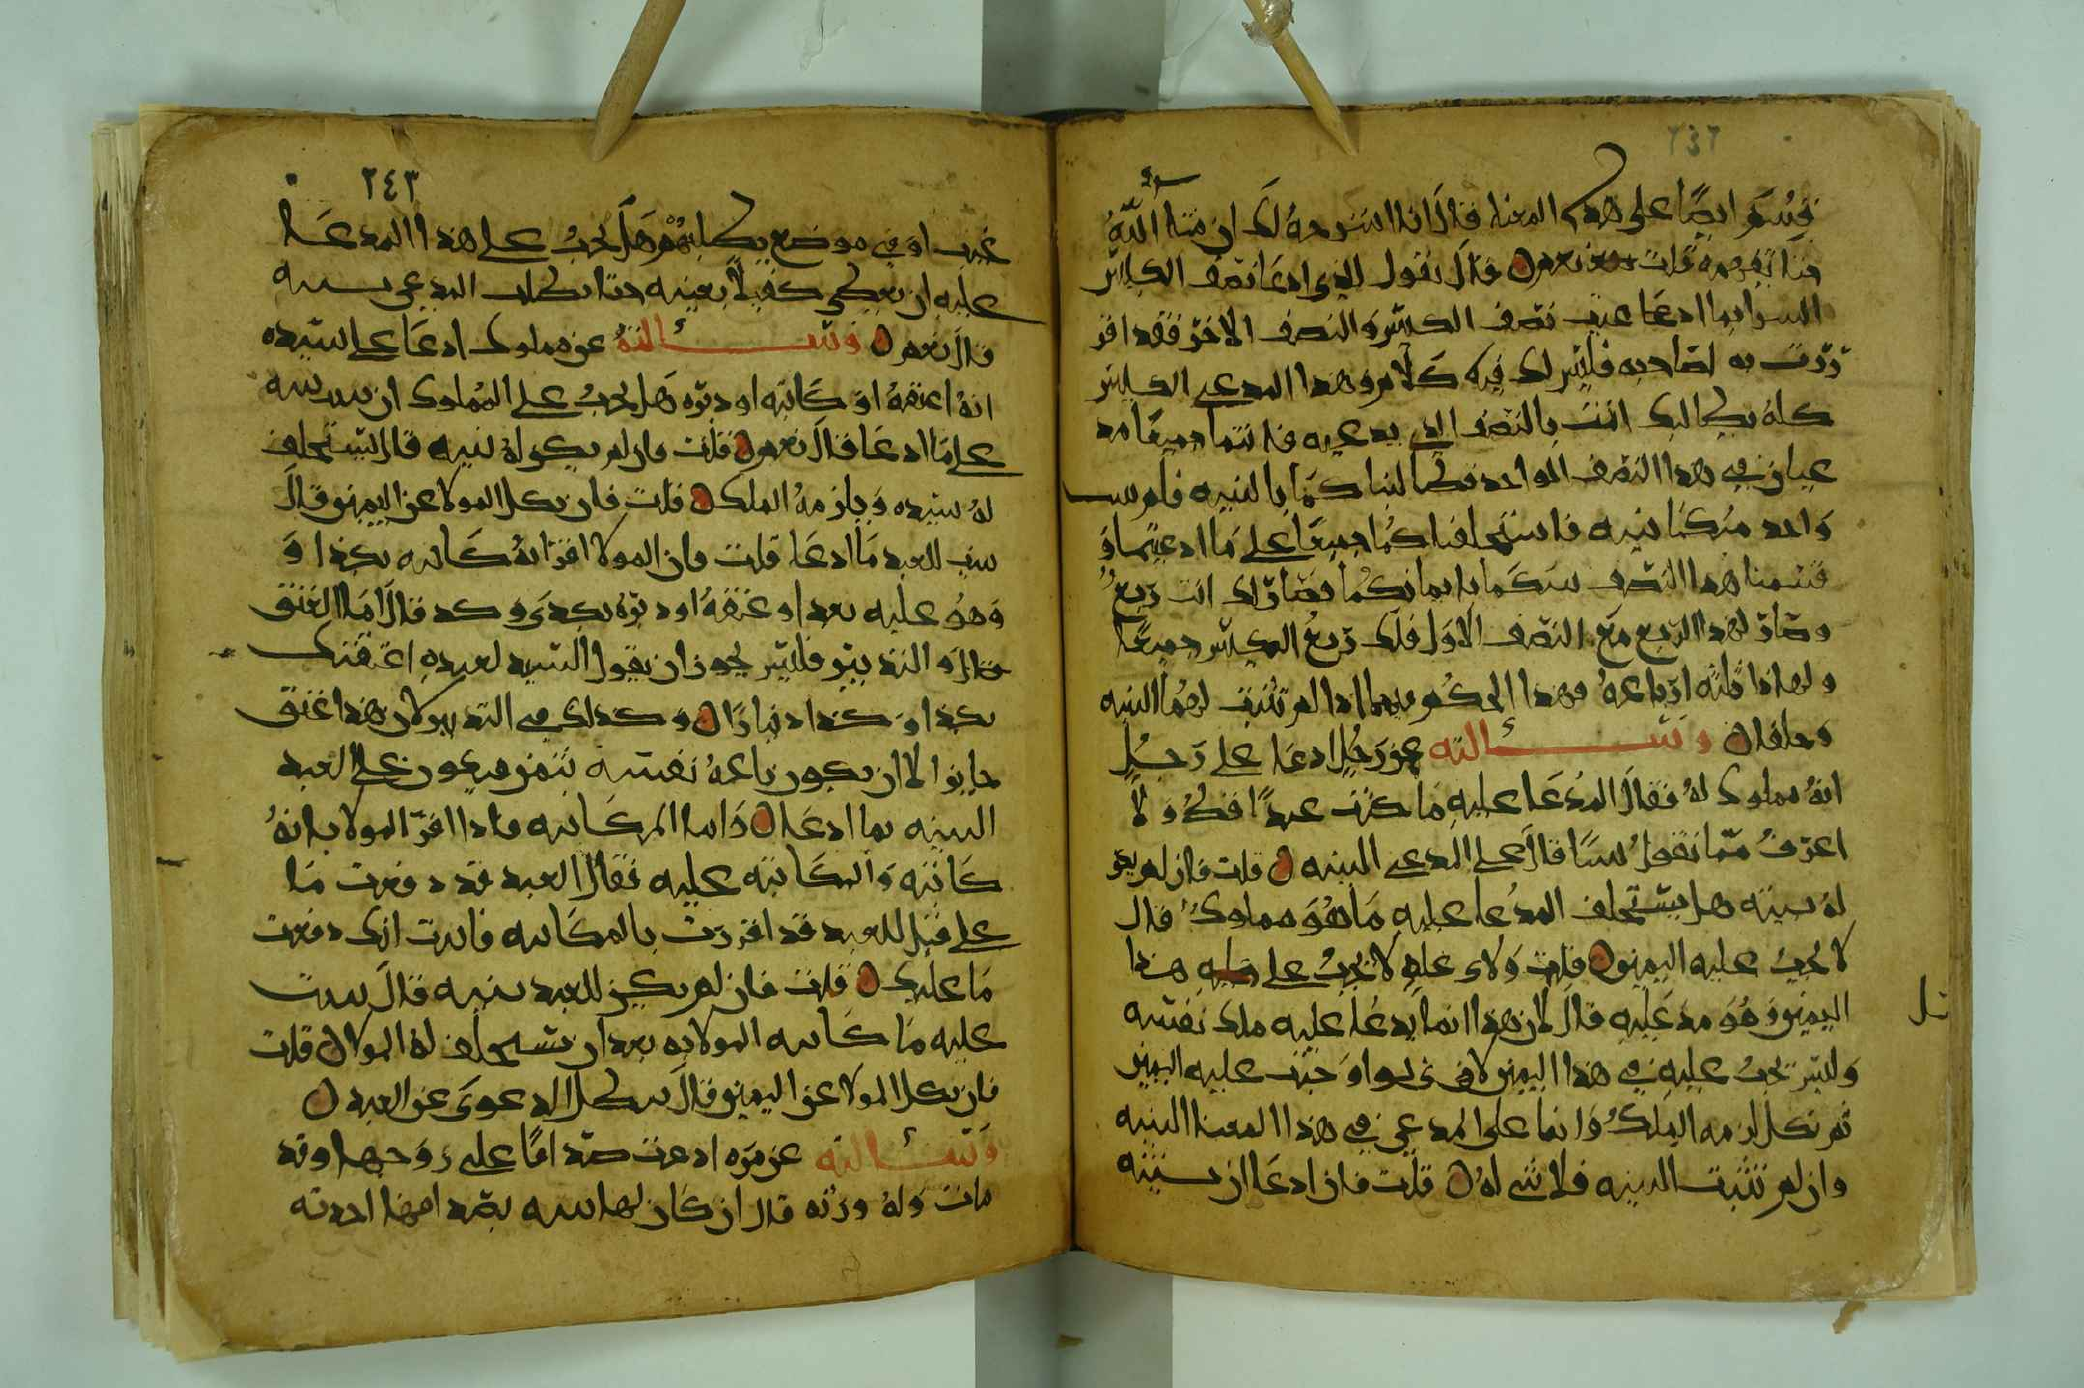 ٢٤٢
فسر ايضًا على هذه المعنا قال انا اشرحه لك ان شا الله
حتا تفهمه قلت نعم قال نقول الذي ادعا نصف الكيس
اليس انما ادعا عين نصف الكيس والنصف الاخر فقد اقر
رت به لصاحبه فليس لك فيه كلام وهذا المدعي الكيس
كله يطالبك انت بالنصف الذي يدعيه فانتما جميعًا مد
عيان في هذا النصف الواحد فطالبناكما بالبينه فلم
واحد منكما بينه فاستحلفناكما جميعًا على ما ادعيتما و
قسمنا هذا النصف بينكما بايمانكما فصار لك انت ربع
وصار لهذا الربع مع النصف الاول فلك ربع الكيس جميعًا
ولهذا ثلثه ارباعه فهذا الحكم فيهما اذا لم تثبت لهما البينه
وحلفا وسالته عن رجل ادعا على رجل
انه مملوك له فقال المدعا عليه ما كنت عبدًا قط ولا
اعرف مما تقول شيًا قال على المدعي البينه قلت فان لم يقم
له بينه هل يستحلف المدعا عليه ما هو مملوك قال
لا يجب عليه اليمين قلت ولاي عله لا يجب على هذا
اليمين وهو مدعا عليه قال لان هذا انما يدعا عليه ملك نفسه
وليس تجب عليه في هذا اليمين لانه لو اوجبت عليه اليمين
ثم نكل لزمه الملك وانما على المدعي في هذا المعنا البينه
وان لم تثبت البينه فلا شي له قلت فان ادعا ان بينته
٢٤٣
غيب او في موضع يطلبهم هل يجب على هذا المدعا
عليه ان يعطي كفيلًا بعينه حتا يطلب المدعي بينه
قال نعم وسالته عن مملوك ادعا على سيده
انه اعتقه او كاتبه او دبره هل يجب على المملوك ان بينه
على ما ادعا قال نعم قلت فان لم يكن له بينه قال يستحلف
له سيده ويلزمه الملك قلت فان نكل المولا عن اليمين قال
يثبت للعبد ما ادعا قلت فان المولا اقر انه كاتبه بكذا و
وهو عليه بعد او عتقه او دبره بكذي وكذ قال اما العتق
والتدبير فليس يجوز ان يقول السيد لعبده اعتقتك
بكذا وكذا دينارًا وكذلك في التدبير لان هذا عتق
جايز الا ان يكون باعه نفسه بثمن فيكون على العبد
البينه بما ادعا واما المكاتبه فاذا اقر المولا بانه
كاتبه والمكاتبه عليه فقال العبد قد دفعت ما
علي قيل للعبد قد اقررت بالمكاتبه فاثبت انك دفعت
ما عليك قلت فان لم يكن للعبد بينه قال يثبت
عليه ما كاتبه المولا به بعد ان يستحلف له المولا قلت
فان نكل المولا عن اليمين قال تبطل الدعوى عن العبد
وسالته عن مره ادعت صداقًا على زوجها وقد
مات وله ورثه قال ان كان لها بينه بصداقها اخذته